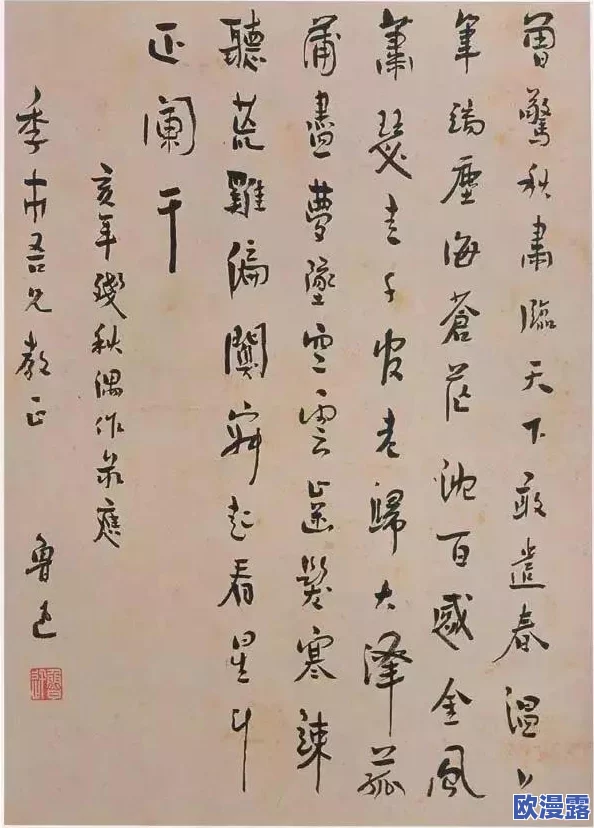 曾驚秋肅臨天下敢遣春溫上
筆端塵海蒼茫沈百感金風
蕭瑟走千官老歸大澤菰
蒲盡夢墜空雲齒髮寒竦
聽荒雞偏闃寂起看星斗
正闌干
亥年殘秋偶作录應
季市吾兄教正
魯迅
魯迅
欧漫露